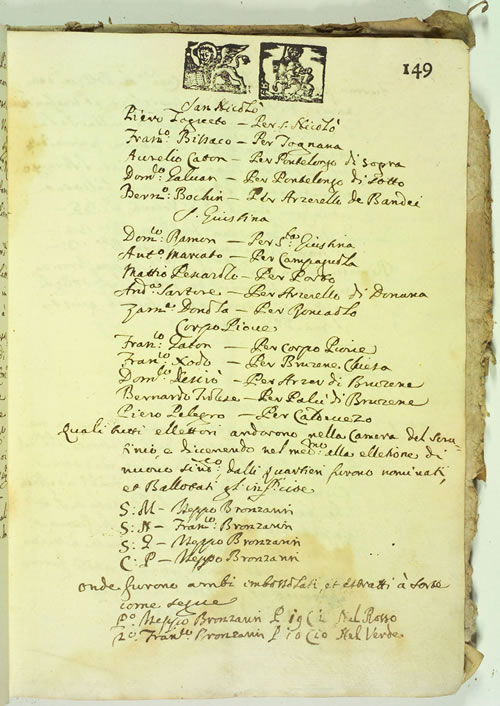 149
San Nicolò
Piero Fagreto — Per S. Nicolò
Franc.co Bissaco — Per Tognana
Aurelio Caton — Per Pontelongo di Sopra
Dom.co Galuan — Per Pontelongo di Sotto
Bern.o Bochin — Per Arzerello de Bandei
S. Giustina
Dom.co Ramon — Per S.ta Giustina
Ant.o Marcato — Per Campagnola
Mattio Pescarolo — Per Porto
And.a Sartore — Per Arzerello di
Zam.a Dondola — Per Roncaolo
Corpo Pioue
Fran.co Gaton — Per Corpo Pioue
Fran.co Xodo — Per Bruzene Chiesa
Dom.co — Per Arzer di Bruzene
Bernardo — Per Palù di Bruzene
Piero Pelegro — Per
Quali tutti ellettori andorono nella Camera del Scru-
tinio e divenendo nel med.mo alla ellettione di
nuouo Sind.co dalli quartieri furono nominati,
et Ballotati gl'inf.ti cioè
S: M — Meppo Bronzauin
S: N — Fran.co Bronzauin
S: G — Meppo Bronzauin
C: P — Meppo Bronzauin
Onde furono ambi imbossolati, et estratti à Sorte
come segue
P.o Meppo Bronzauin P 19 C 2 Nel Rosso
2.o Fran.co Bronzauin P 10 C 10 Nel Verde